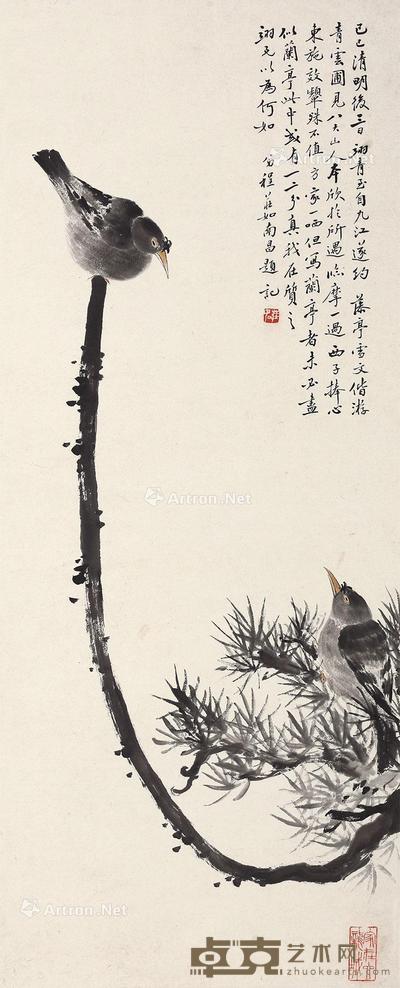 己巳清明後三日翊青至自九江遂約藤亭雪文偕游
青雲圃見八大山人本欣於所遇臨摩一過西子捧心
東施效顰殊不值方家一哂但寫蘭亭者未必盡
似蘭亭此中或有一二分真我在質之
翊兄以為何如 程莊如南昌題記
Artron.Net
Artron.Net
Artron.Net
Artron.Net
卓克艺术网
www.zhuokearts.com